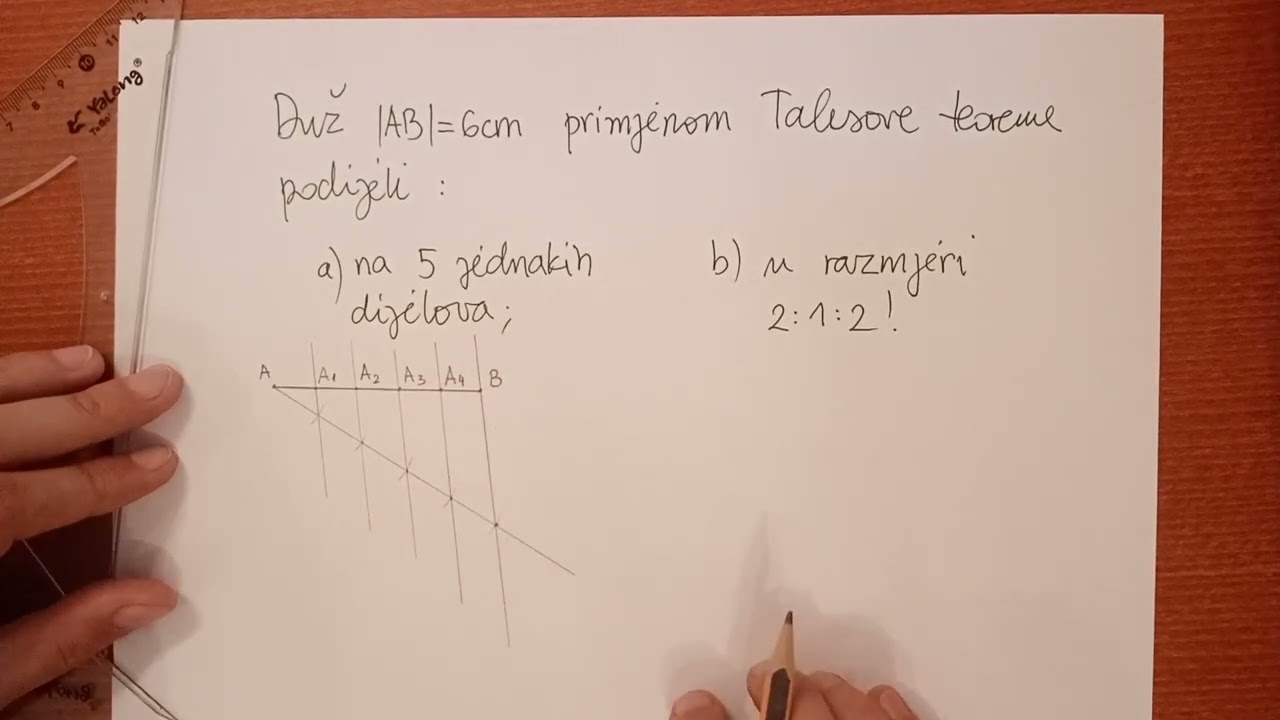 Duž |AB|=6cm primjenom Talesove teoreme
podijeli :
a) na 5 jednakih
dijelova;
b) u razmjeri
2:1:2!
A A1 A2 A3 A4 B
YaLong®
7 8 9 10 11 12